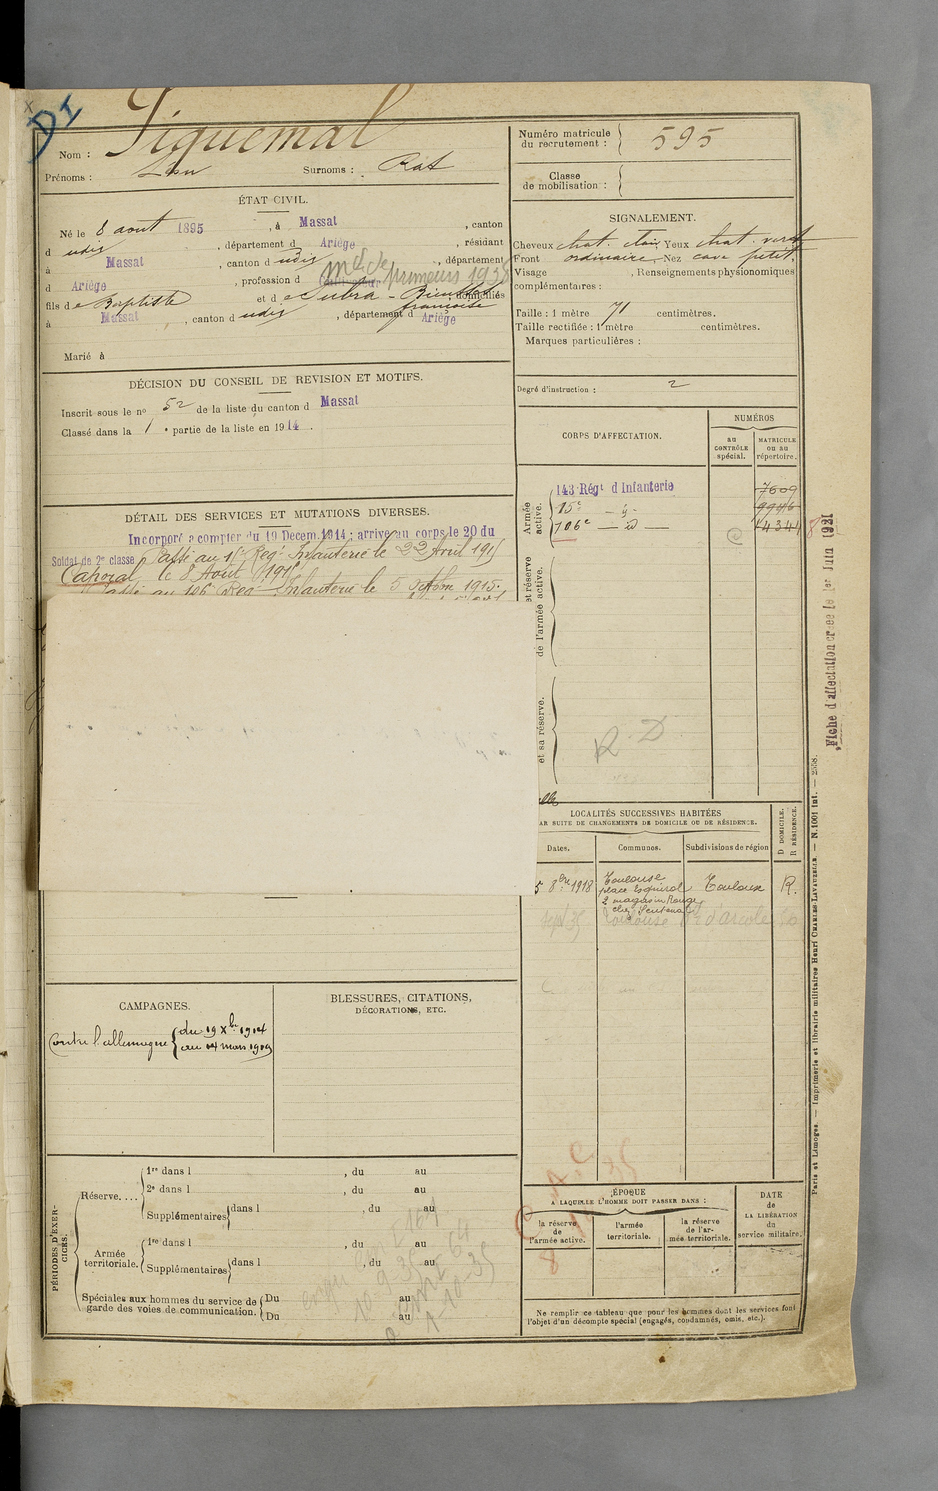 DI
Nom : Piquemal
Prénoms : Jean Surnoms : Rat
ÉTAT CIVIL.
Né le 8 aout 1895, à Massat, canton
d udis, département d Ariège, résidant
à Massat, canton d udis, département
d Ariège, profession d md de primeurs 1935
fils de Baptiste et de Subra - françoise, domiciliés
à Massat, canton d udis, département d Ariège
Marié à
DÉCISION DU CONSEIL DE REVISION ET MOTIFS.
Inscrit sous le no 52 de la liste du canton d Massat
Classé dans la 1e partie de la liste en 1914.
DÉTAIL DES SERVICES ET MUTATIONS DIVERSES.
Incorporé a compter du 19 Decem. 1914 ; arrivé au corps le 20 du
Soldat de 2e classe Passé au 15e Regt Infanterie le 22 Avril 1915
Caporal le 8 Aout 1915
Passé au 106e Reg Infanterie le 5 Octbre 1915.
CAMPAGNES.
Contre l'allemagne { du 19 Xbre 1914
au 14 mars 1919
BLESSURES, CITATIONS,
DÉCORATIONS, ETC.
PÉRIODES D'EXERCICES.
Réserve.... 1re dans l , du au
2e dans l , du au
Supplémentaires dans l , du au
Armée territoriale. 1re dans l , du au
Supplémentaires dans l , du au
Spéciales aux hommes du service de garde des voies de communication. Du au
Du au
Numéro matricule du recrutement : 595
Classe de mobilisation :
SIGNALEMENT.
Cheveux chat. clair Yeux chat. verd
Front ordinaire Nez cave petit
Visage , Renseignements physionomiques
complémentaires :
Taille : 1 mètre 71 centimètres.
Taille rectifiée : 1 mètre centimètres.
Marques particulières :
Degré d'instruction : 2
CORPS D'AFFECTATION.
NUMÉROS
au CONTRÔLE spécial.
MATRICULE ou au répertoire.
Armée active.
143 Régt d'Infanterie 7609
15e — d° - 9946
106e — d° — 14344
et réserve de l'armée active.
et sa réserve.
R. D
Fiche d'affectation créée le 1er Juin 1921
LOCALITÉS SUCCESSIVES HABITÉES
AR SUITE DE CHANGEMENTS DE DOMICILE OU DE RÉSIDENCE.
Dates. Communes. Subdivisions de région D DOMICILE. R RÉSIDENCE.
5 8bre 1918 Toulouse place Esquirol magasin Rouge chez Toulouse R.
Sept 35 Toulouse d'arcole
ÉPOQUE
A LAQUELLE L'HOMME DOIT PASSER DANS :
la réserve de l'armée active.
l'armée territoriale.
la réserve de l'armée territoriale.
DATE de LA LIBÉRATION du service militaire.
Ne remplir ce tableau que pour les hommes dont les services font
l'objet d'un décompte spécial (engagés, condamnés, omis, etc.).
Paris et Limoges. — Imprimerie et librairie militaires Henri CHARLES-LAVAUZELLE. — N. 1001 int. — 2558.